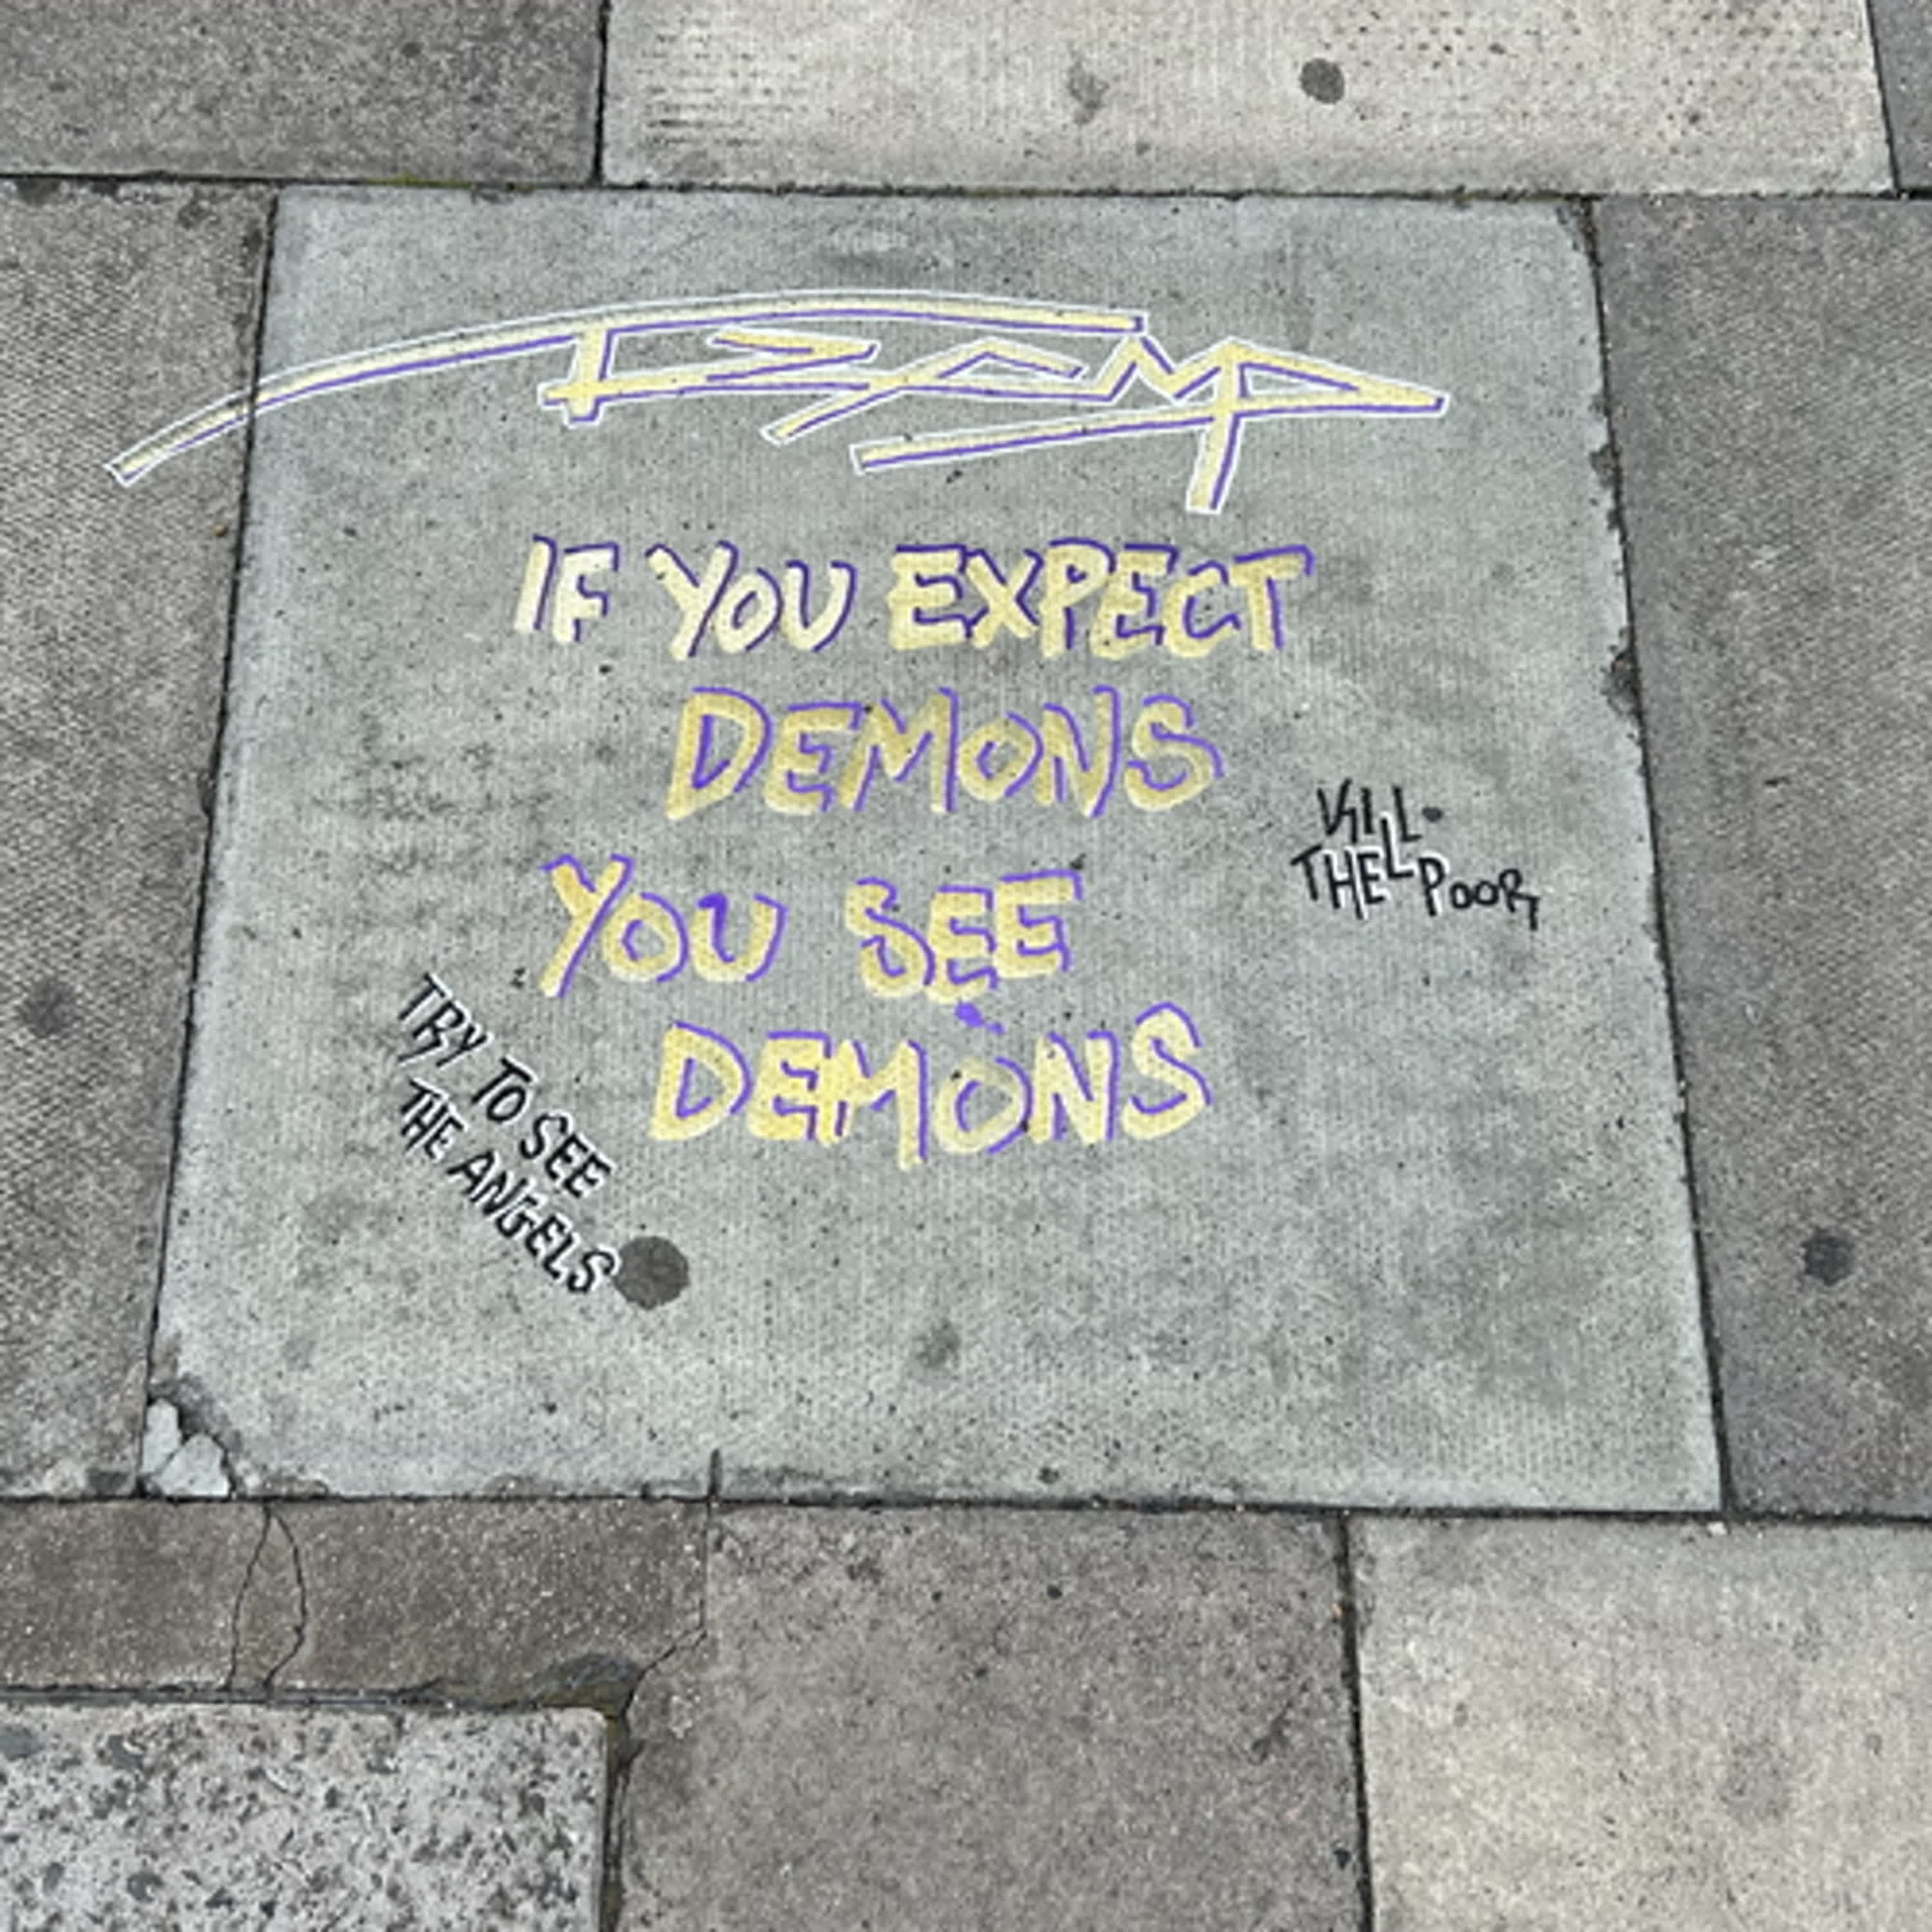 IF YOU EXPECT
DEMONS
YOU SEE
DEMONS
KILL
THE POOR
TRY TO SEE
THE ANGELS